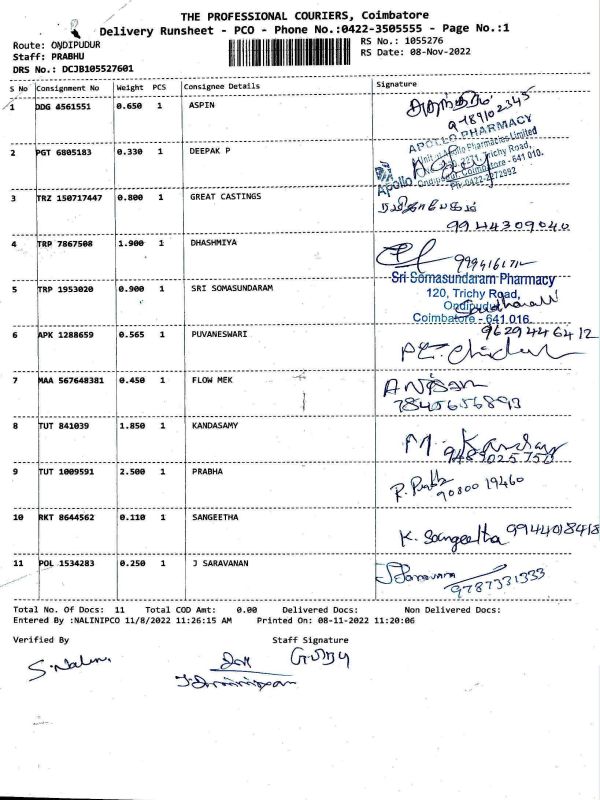 THE PROFESSIONAL COURIERS, Coimbatore
Delivery Runsheet - PCO - Phone No.:0422-3505555 - Page No.:1
Route: ONDIPUDUR
RS No.: 1055276
Staff: PRABHU
RS Date: 08-Nov-2022
DRS No.: DCJB105527601
S No Consignment No Weight PCS Consignee Details Signature
1 DDG 4561551 0.650 1 ASPIN
2 PGT 6805183 0.330 1 DEEPAK P
APOLLO PHARMACY
Apollo
3 TRZ 150717447 0.800 1 GREAT CASTINGS
9944309040
4 TRP 7867508 1.900 1 DHASHMIYA
5 TRP 1953020 0.900 1 SRI SOMASUNDARAM
Sri Somasundaram Pharmacy
120, Trichy Road,
Coimbatore - 641 016.
6 APK 1288659 0.565 1 PUVANESWARI
9629446412
7 MAA 567648381 0.450 1 FLOW MEK
7845656893
8 TUT 841039 1.850 1 KANDASAMY
9489025750
9 TUT 1009591 2.500 1 PRABHA
90800 19460
10 RKT 8644562 0.110 1 SANGEETHA
K. Sangeetha 9944018418
11 POL 1534283 0.250 1 J SARAVANAN
9787331333
Total No. Of Docs: 11 Total COD Amt: 0.00 Delivered Docs: Non Delivered Docs:
Entered By :NALINIPCO 11/8/2022 11:26:15 AM Printed On: 08-11-2022 11:20:06
Verified By Staff Signature
S. Nalini